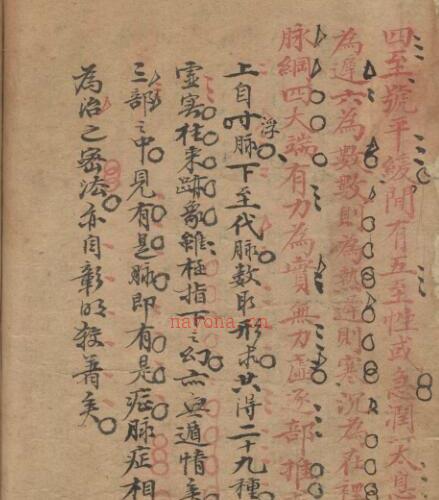 四至號平緩閒有五至性或急潤太息
為遲六為數數則為熱遲則寒沉為在裡
脉綱四大端有力為實無力虛家部推
浮
上自脉下至代脉數取形求共得二十九種
虛实往来跡象雖極指下之幻亦無遁情
三部之中見有是脉即有是症脉症相
為治之密法亦自彰明著矣
nayona.cn